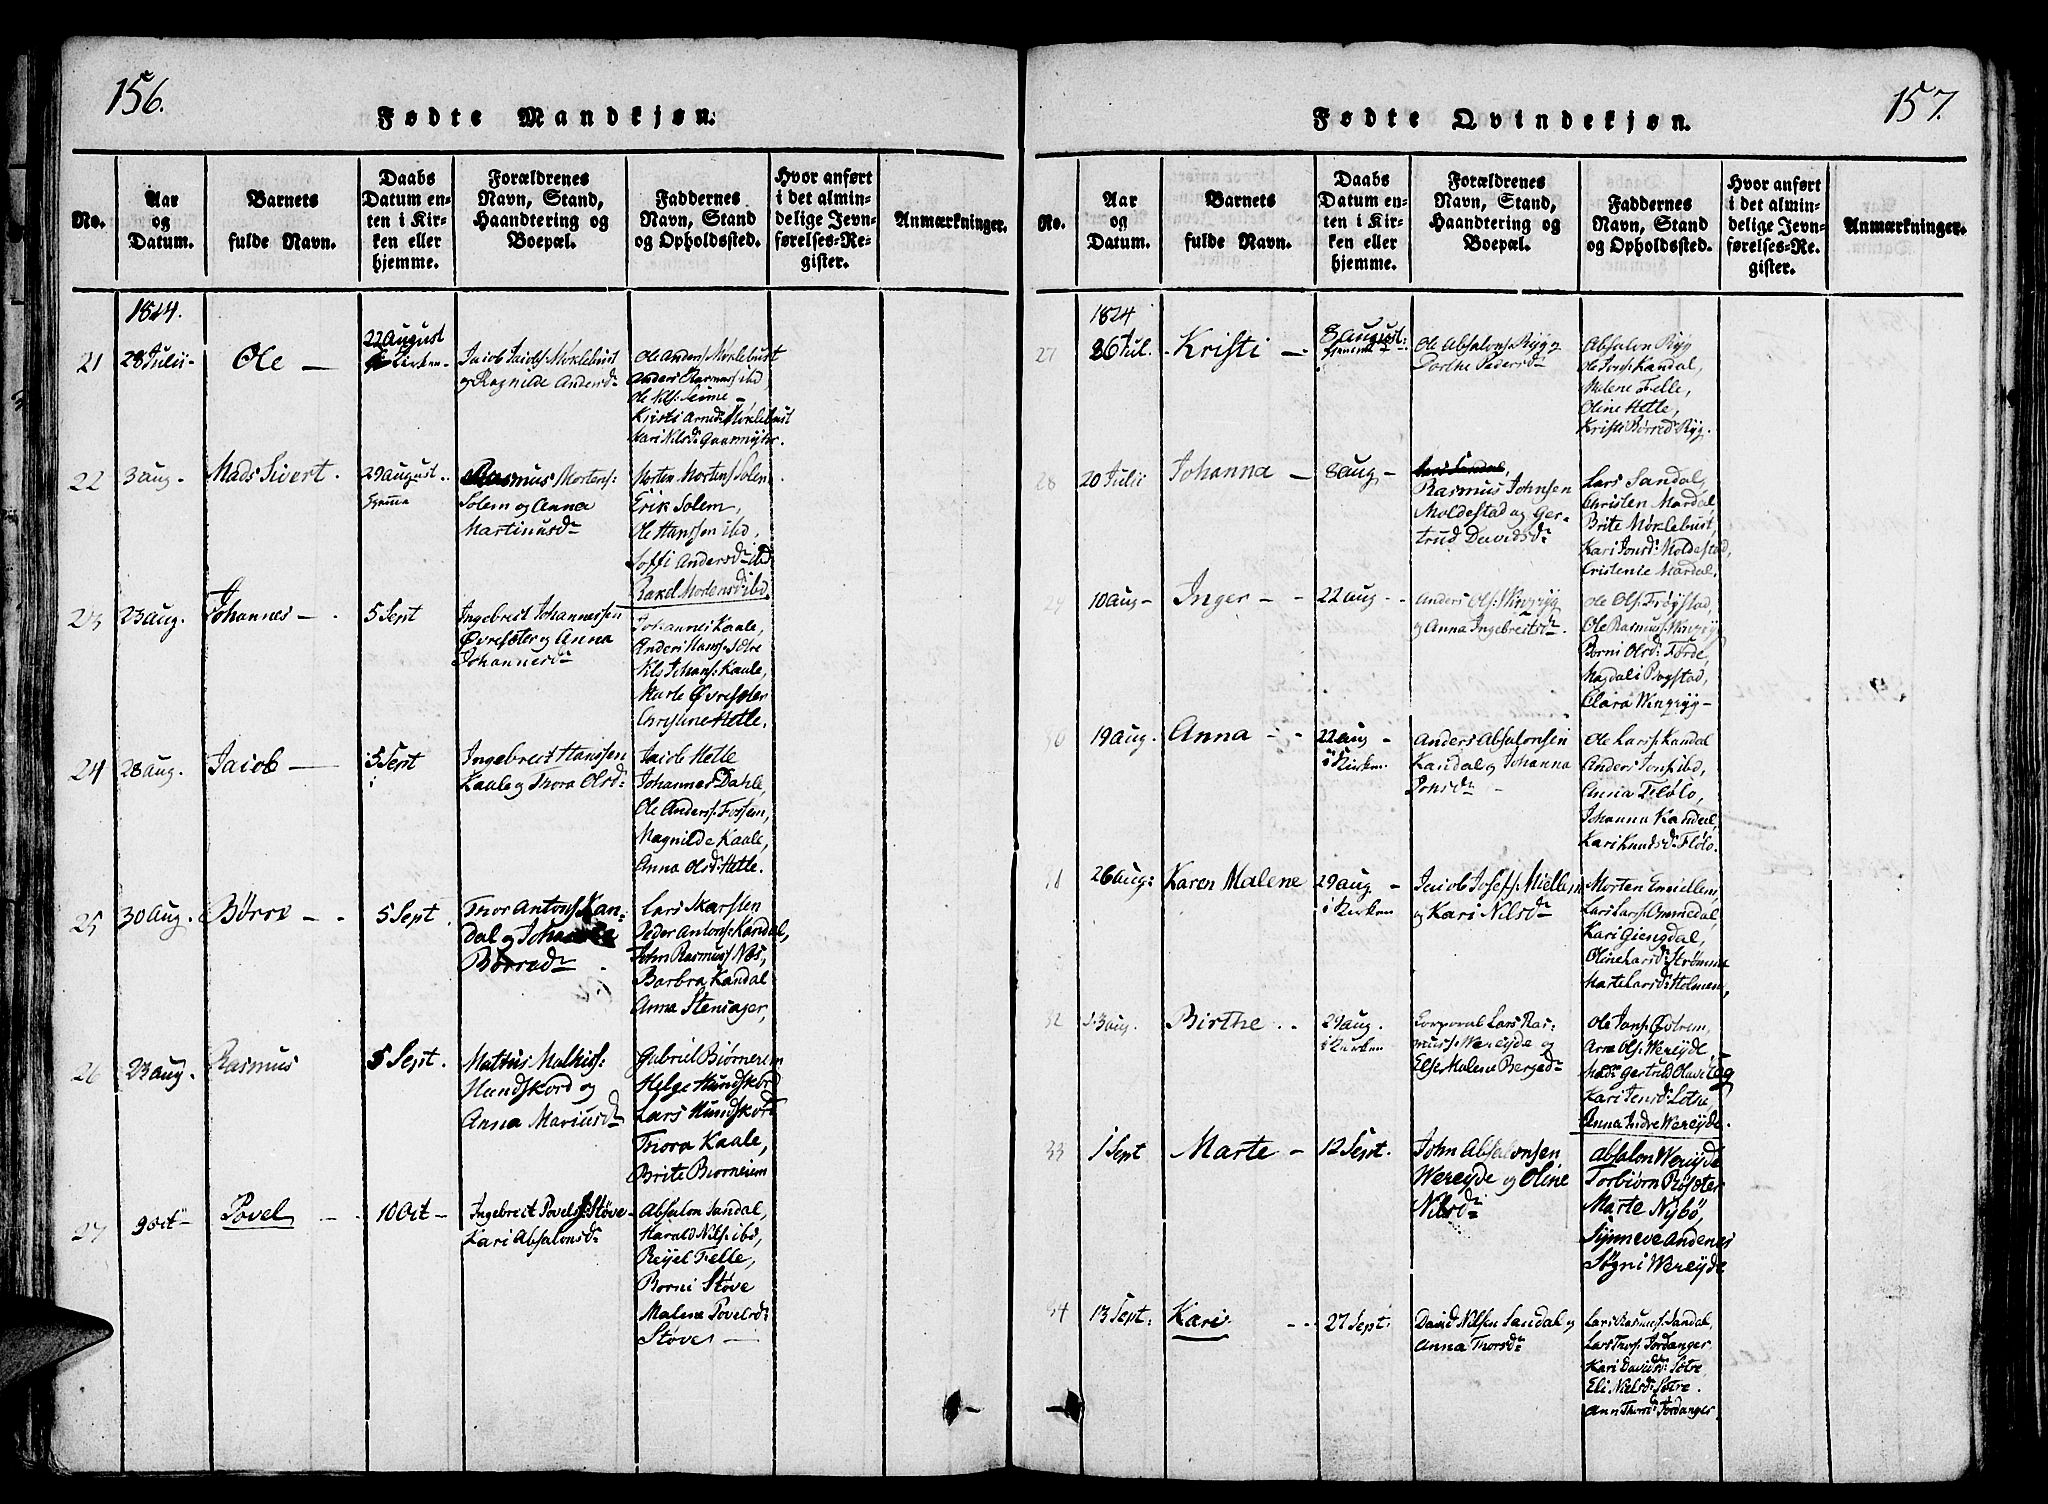 156.
Fødte Mandkjøn.
No.
Aar
og
Datum.
Barnets
fulde Navn.
Daabs
Datum en-
ten i Kir-
ken eller
hjemme.
Forældrenes
Navn, Stand,
Haandtering og
Boepæl.
Faddernes
Navn, Stand
og Opholdssted.
Hvor anført
i det almin-
delige Jevn-
førelses-Re-
gister.
Anmærkninger.
1824.
21
28 Julii
Ole
22 August
i Kirken
Jacob Jacobs: Møklebust
og Ragnilde Andersdr
Ole Anders: Møklebust
Anders Rasmuss: ibd
Ole Nils: Seime
Kirsti Arnedr: Møklebust
Kari Nilsdr
22
3 aug
Mads Sivert
29 august
Hjemme
Rasmus Mortens:
Solem og Anna
Martinusdr
Morten Mortens: Solem
Erik Solem,
Ole Hanssen ibd,
Soffi Andersdr ibd
Mortensdr ibd.
23
23 aug.
Johannes
5 Sept
Ingebreit Johannessen
Øvresæter og Anna
Johannesdr
Johannes Kaale,
Anders Hans: Sætre
Nls Johans: Kaale,
Marte Øvresæter
Christine Hetle.
24
28 aug.
Jacob
5 Sept
Ingebreit Hanssen
Kaale og Thora Olsdr:
Jacob Hetle
Johannes Dahle,
Ole Anders: Fossem,
Magnilde Kaale,
Anna Olsdr: Hetle.
25
30 Aug.
Børre
5 Sept.
Thor Antons: Kan-
dal og Johanna
Børredr
Lars Skarsten
Peder Antons: Kandal,
John Rasmus: Næs,
Barbra Kandal
Anna Stensager,
26
23 aug.
Rasmus
5 Sept.
Mattius Mathiss:
Hundskord og
Anna Mariusdr
Gabriel Biørnereim
Helge Hundskord
Lars Hundskord
Thora Kaale,
Brite Biørnereim
27
9 Oct
Povel
10 Oct
Ingebreit Povels: Støve
Kari Absalonsdr
Absalon Sandal,
Harald Nils: ibd,
Reijel Felle,
Borni Støve
Malene Povelsdr:
Støve
157.
Fødte Qvindekjøn.
No.
Aar
og
Datum.
Barnets
fulde Navn.
Daabs
Datum en-
ten i Kir-
ken eller
hjemme.
Forældrenes
Navn, Stand,
Haandtering og
Boepæl.
Faddernes
Navn, Stand
og Opholdssted.
Hvor anført
i det almin-
delige Jevn-
førelses-Re-
gister.
Anmærkninger.
1824
27
26 Jul.
Kristi
8 August:
hjemme
Ole Absalons: Rygg
Dorthe Pedersdr
Absalon Ryg
Ole Jons: Kandal,
Malene Felle,
Oline Hetle,
Kristi Børredr: Ryg.
28
20 Julii
Johanna
8 aug
Rasmus Johnsen
Moldestad og Ger-
trud Davidsdr
Lars Sandal,
Christen Mardal,
Brite Møklebust,
Kari Jonsdr: Moldestad,
Cristense Mardal.
29
10 aug
Inger
22 aug
Anders Ols: Wingryg
og Anna Ingebreitsdr.
Ole Ols: Frøystad,
Ole Rasmuss: Wingryg
Borni Olsdr: Førde,
Magdali Bogstad,
Clara Wingryg
30
19 aug.
Anna
22 aug
i Kirken
Anders Absalonsen
Kandal og Johanna
Jonsdr
Ole Lars: Kandal
Anders Jons: ibd,
Anna Fløtø,
Johanna Kandal,
Kari Knudsdr: Fløto.
31
26 aug:
Karen Malene
29 aug.
i Kirken
Jacob Josefs: Miellem
og Kari Nilsdr
Morten Emidlem,
Lars Lars: Ommedal,
Kari Giengdal,
Oline Larsdr: Strømme
Marte Larsdr: Holmen,
32
13 aug.
Birthe
29 aug.
i Kirken
Corporal Lars Ras-
muss: Wereyde og
Else Malene Bergedr
Ole Jans: Østrem,
Arne Ols: Wereyde,
Kari Jensdr: Lothe,
Anna Indre Wereyde.
33
1 Sept
Marte
12 Sept.
John Absalonsen
Wereyde og Oline
Nilsdr
Absalon Wereyde
Torbiørn Røsæter
Marte Nybø,
Synneve Andenes
Søgni Wereyde
34
13 Sept:
Kari
27 Sept:
David Nilsen Sandal og
Anna Thorsdr
Lars Rasmus: Sandal,
Lars Thors: Jordanger
Kari Davidsdr: Sætre
Eli Nielsdr: Sætre.
Ann Thorsdr: Jordanger